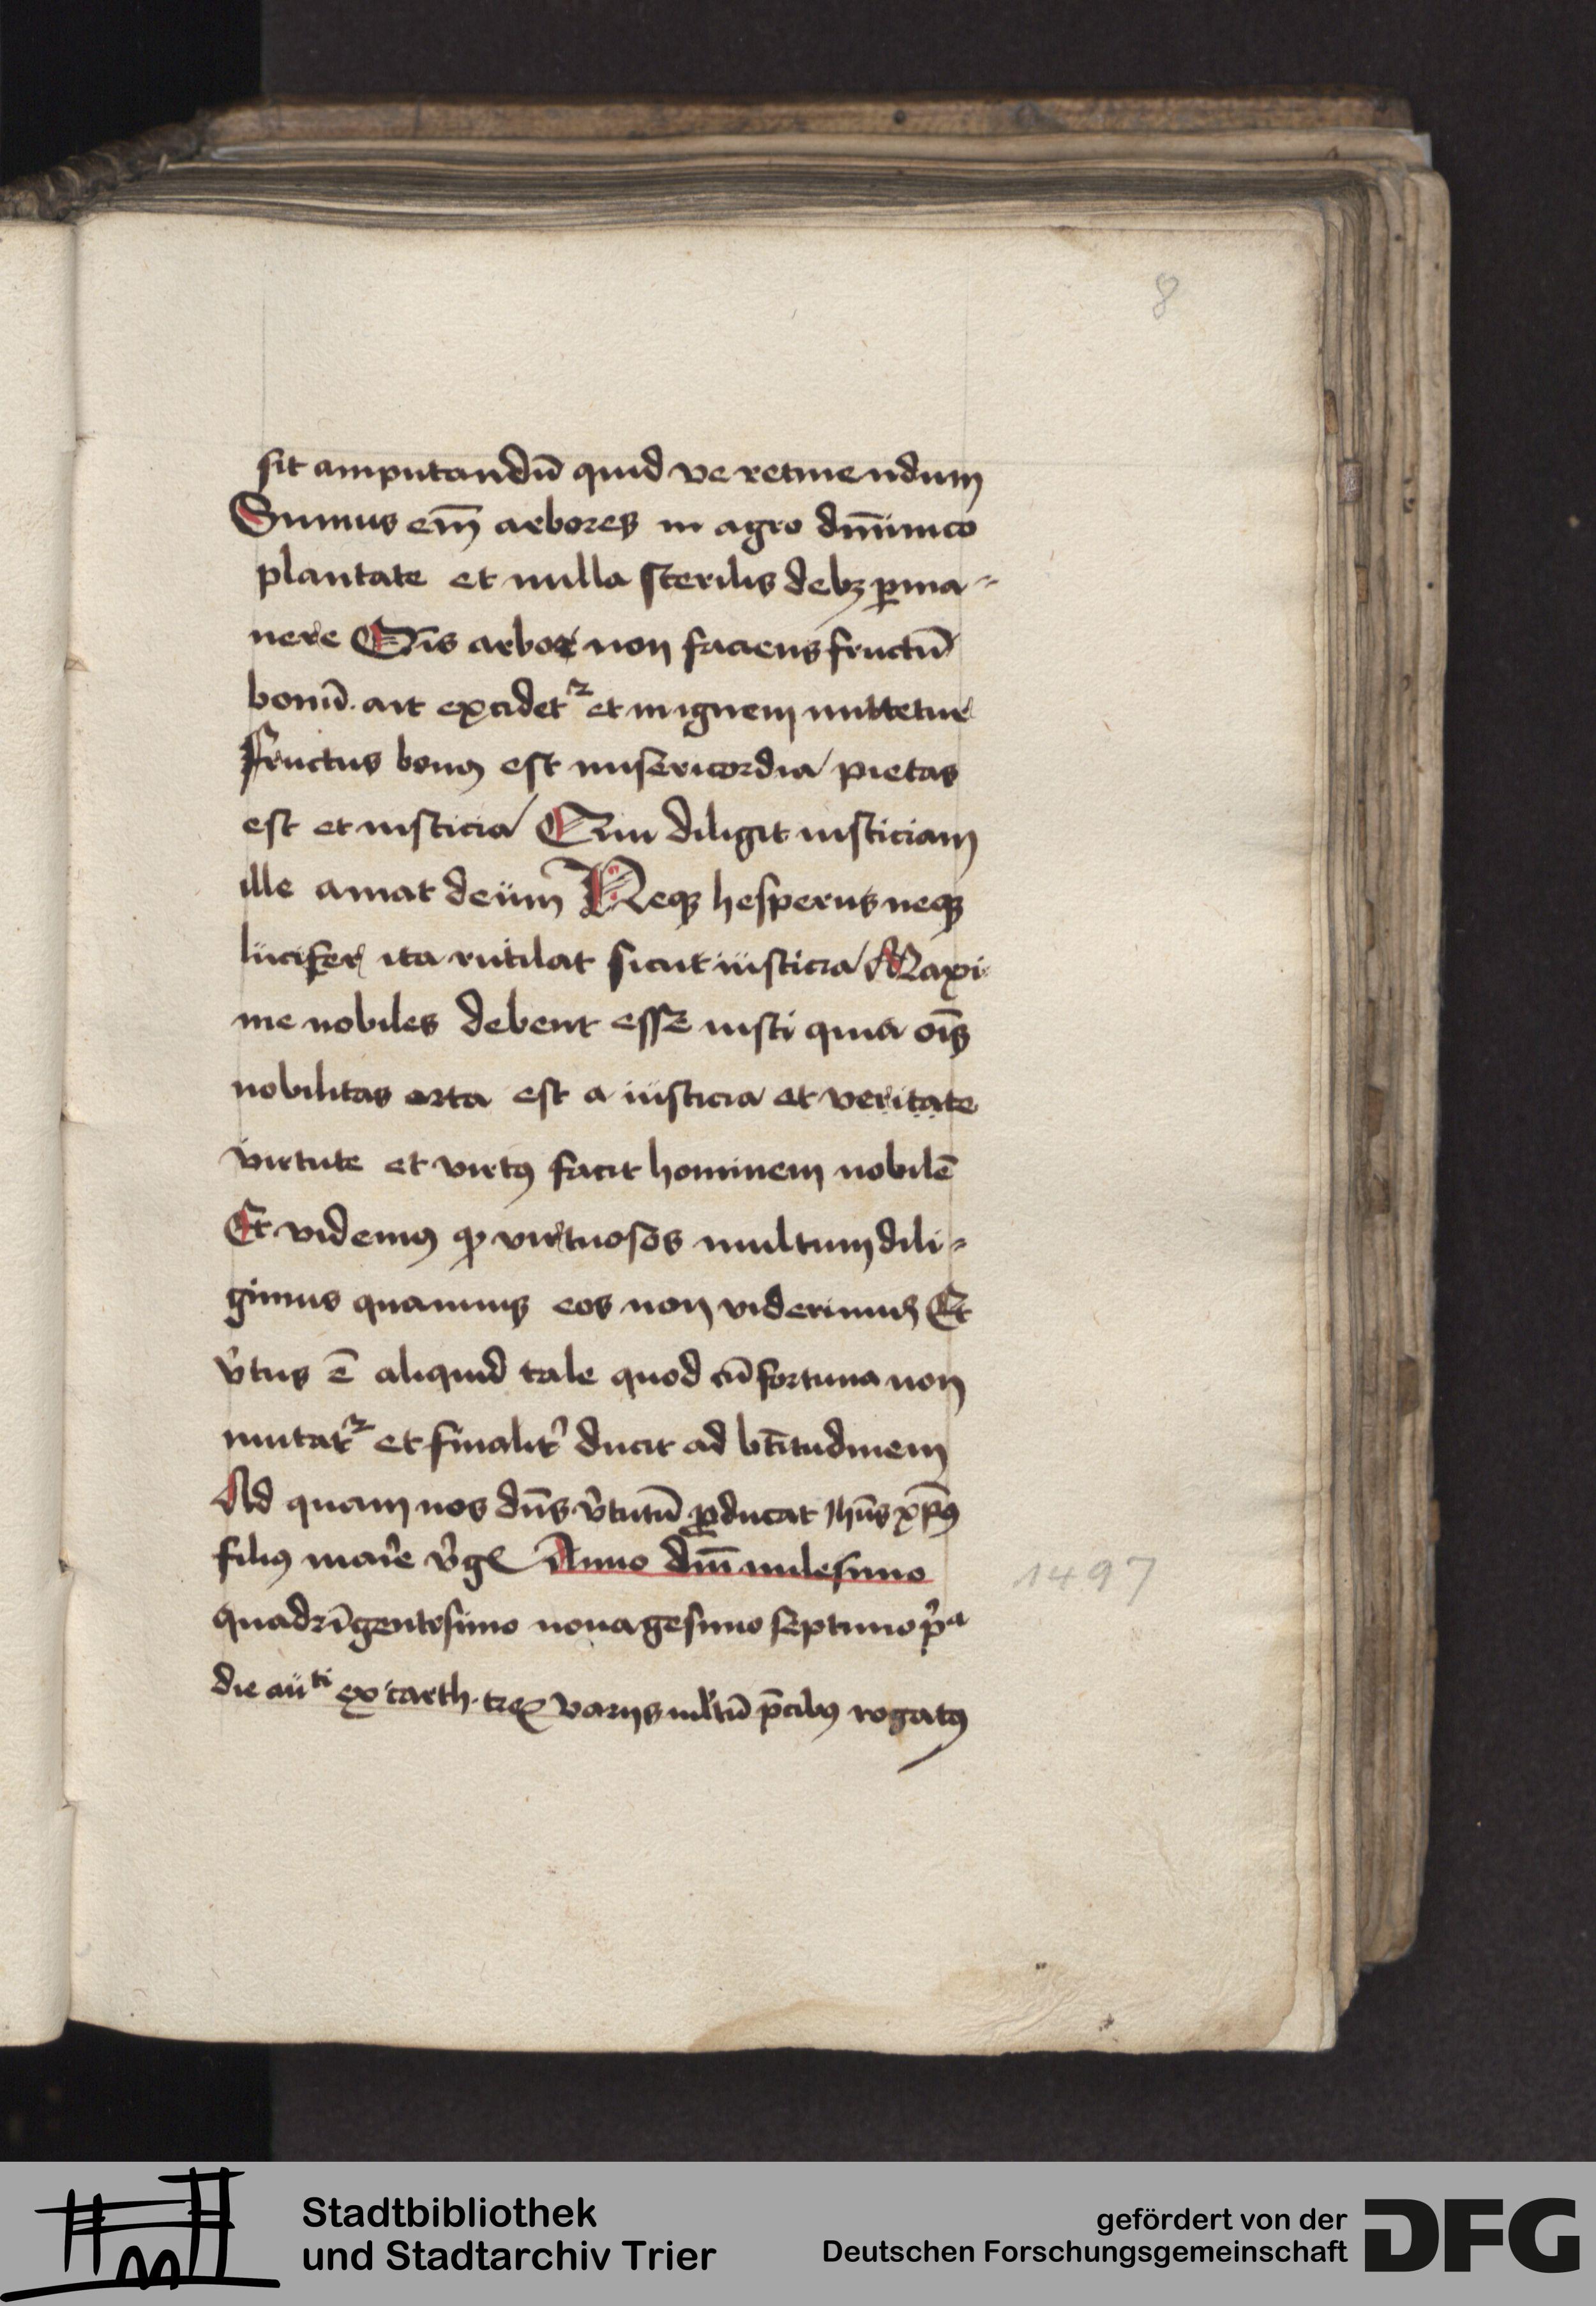 8
sit amputandū quid ve retinendum
Sumus em̄ arbores in agro dm̄inico
plantate et nulla sterilis debꝫ ꝑma⸗
nere Oīs arbor non faciens fructū
bonū. ait excidetᷣ et in ignem mittetur
fructus bonꝰ est misericordia pietas
est et iusticia Qui diligit iusticiam
ille amat deum Neqꝫ hesperus neqꝫ
lucifer ita rutilat sicut iusticia Maxi
me nobiles debent esse iusti quia oīs
nobilitas orta est a iusticia et veritate
virtute et virtꝰ facit hominem nobilē
Et videmꝰ ꝙ virtuosos multum dili⸗
gimus quamuis eos non viderimus Et
v̓tus ē aliquid tale quod cū fortuna non
mutatᷣ et finalit̓ ducit ad bt̄itudinem
Ad quam nos dn̄s v̓tutū ꝑducat Jhūs xp̄s
filiꝰ marie v̓gīs Anno dm̄ milesimo
1497
quadrīgentesimo nonagesimo septimo p̓ᵃ
die auᵗⁱ ex carth. tre varijs ml̓tū p̄cibꝰ rogatꝰ
Stadtbibliothek
und Stadtarchiv Trier
gefördert von der
Deutschen Forschungsgemeinschaft
DFG